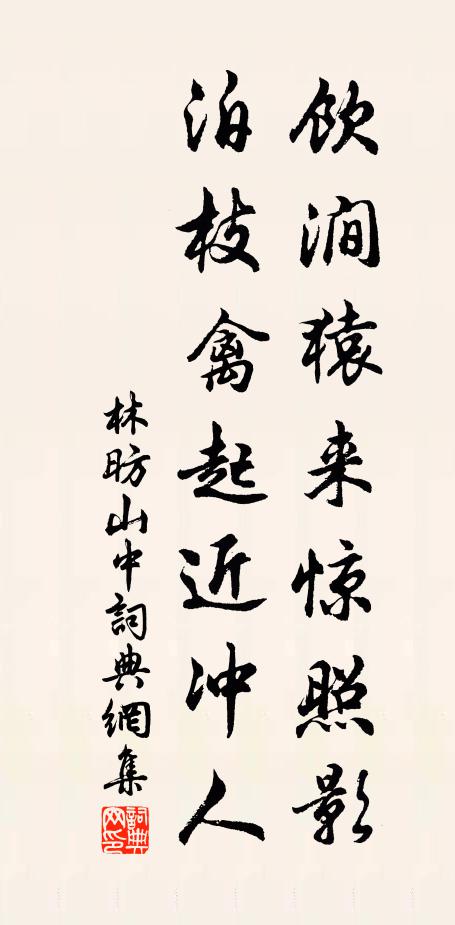 饮涧猿来惊照影
泊枝禽起近冲人
林昉山中詞典網集
詞典
网印